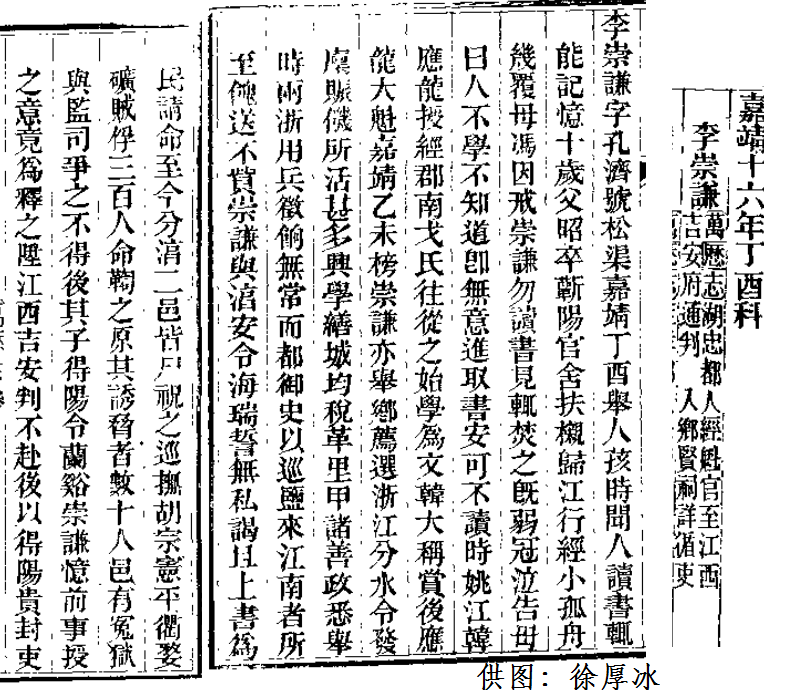 嘉靖十六年丁酉科
李崇謙
萬曆志湖忠都人經魁官至江西
吉安府通判 入鄉賢祠詳循吏
李崇謙字孔濟號松渠嘉靖丁酉舉人孩時聞人讀書輒
能記憶十歲父昭卒蘄陽官舍扶櫬歸江行經小孤舟
幾覆母馮因戒崇謙勿讀書見輒焚之旣弱冠泣告母
曰人不學不知道卽無意進取書安可不讀時姚江韓
應龍授經郡南戈氏往從之始學爲文韓大稱賞後應
龍大魁嘉靖乙未榜崇謙亦舉鄉薦選浙江分水令發
廩賑饑所活甚多興學繕城均稅革里甲諸善政悉舉
時兩浙用兵徵餉無常而都御史以巡鹽來江南者所
至餽送不貲崇謙與淯安令海瑞誓無私謁且上書爲
民請命至今分淯二邑皆尸祝之巡撫胡宗憲平衢婺
礦賊俘三百人命鞫之原其誘脅者數十人邑有冤獄
與監司爭之不得後其子得陽令蘭谿崇謙憶前事授
之意竟爲釋之陞江西吉安判不赴後以得陽貴封吏
供图：徐厚冰